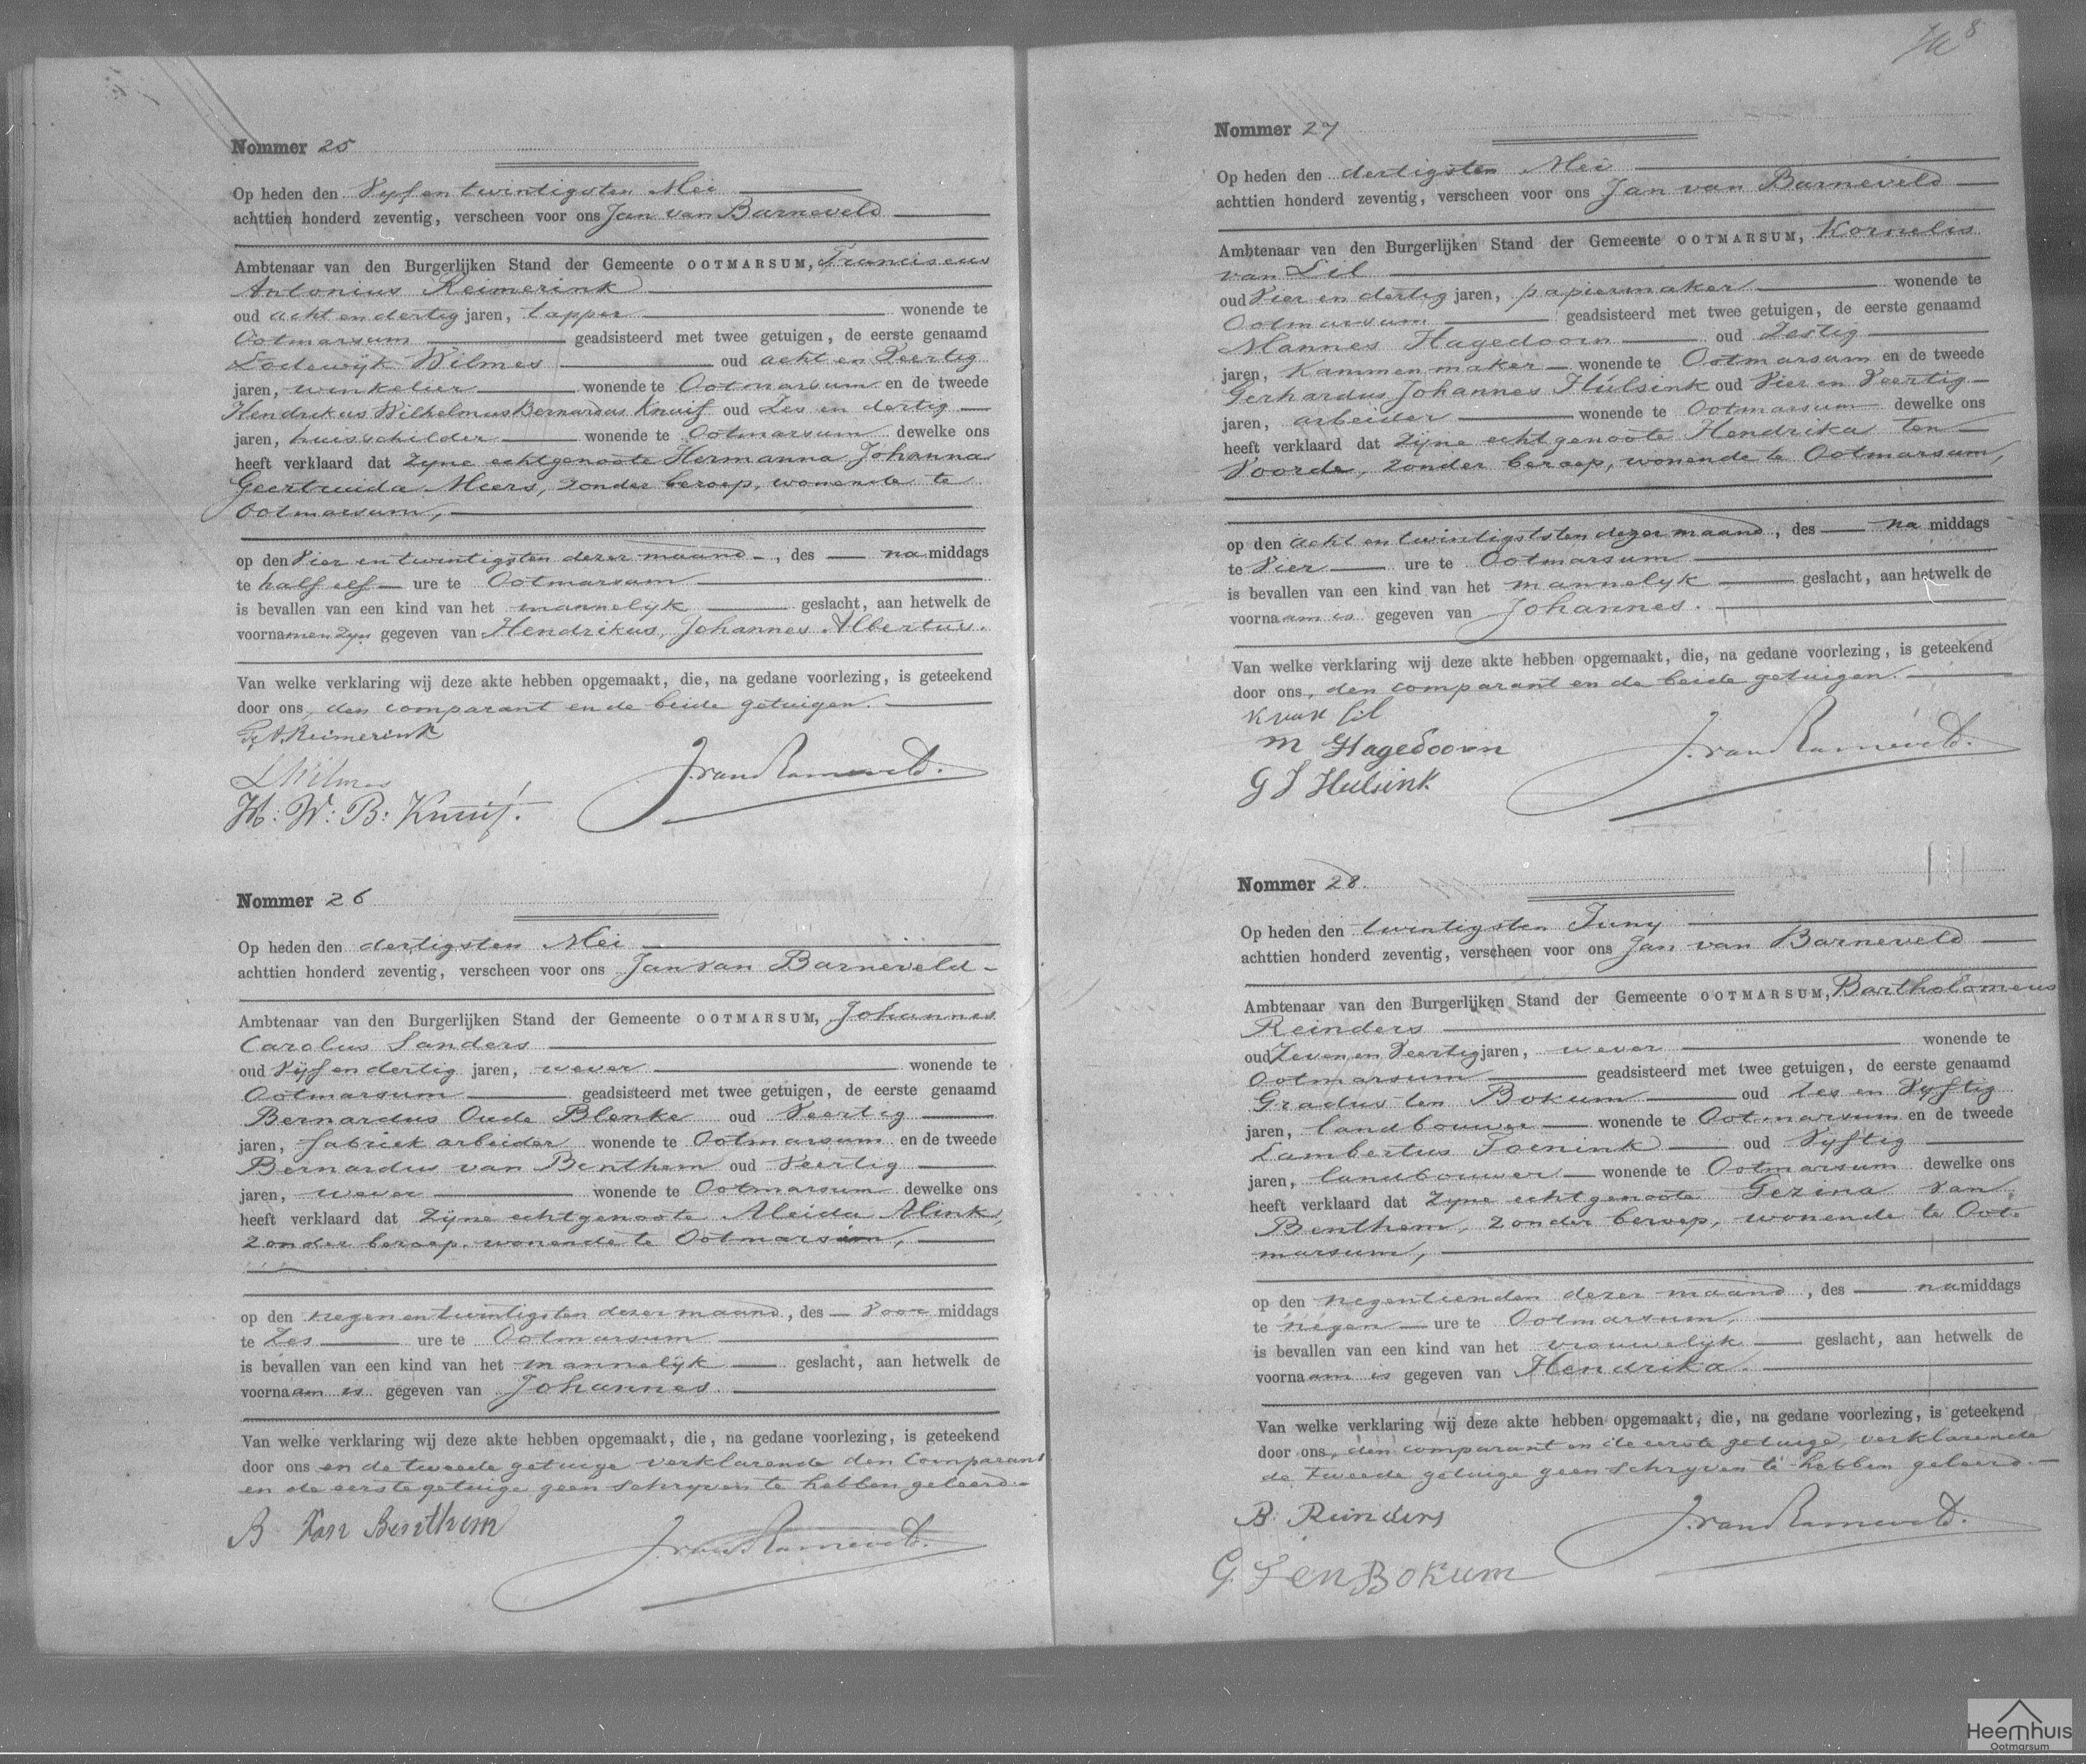 Nommer 25
Op heden den Vyf en twintigsten Mei
achttien honderd zeventig, verscheen voor ons Jan van Barneveld
Ambtenaar van den Burgerlijken Stand der Gemeente OOTMARSUM, Franciscus
Antonius Reimerink
oud acht en dertig jaren, tapper wonende te
Ootmarsum geadsisteerd met twee getuigen, de eerste genaamd
Lodewyk Wilmes oud acht en Veertig
jaren, winkelier wonende te Ootmarsum en de tweede
Hendrikus Wilhelmus Bernardus Knuif oud Zes en dertig
jaren, huisschilder wonende te Ootmarsum dewelke ons
heeft verklaard dat zyne echtgenoote Hermanna Johanna
Geertruida Meers, zonder beroep, wonende te
Ootmarsum,
op den Vier en twintigsten dezer maand, des na middags
te half elf ure te Ootmarsum
is bevallen van een kind van het mannelyk geslacht, aan hetwelk de
voornamen zyn gegeven van Hendrikus, Johannes Albertus.
Van welke verklaring wij deze akte hebben opgemaakt, die, na gedane voorlezing, is geteekend
door ons, den comparant en de beide getuigen.
Reimerink
L Wilmes
H: W: B: Knuif.
J. van Barneveld.
Nommer 26
Op heden den dertigsten Mei
achttien honderd zeventig, verscheen voor ons Jan van Barneveld
Ambtenaar van den Burgerlijken Stand der Gemeente OOTMARSUM, Johannes
Carolus Sanders
oud Vyf en dertig jaren, wever wonende te
Ootmarsum geadsisteerd met twee getuigen, de eerste genaamd
Bernardus Oude Blenke oud Veertig
jaren, fabriek arbeider wonende te Ootmarsum en de tweede
Bernardus van Benthem oud Veertig
jaren, wever wonende te Ootmarsum dewelke ons
heeft verklaard dat zyne echtgenoote Aleida Alink,
zonder beroep, wonende te Ootmarsum,
op den negen en twintigsten dezer maand, des Voor middags
te Zes ure te Ootmarsum
is bevallen van een kind van het mannelyk geslacht, aan hetwelk de
voornaam is gegeven van Johannes.
Van welke verklaring wij deze akte hebben opgemaakt, die, na gedane voorlezing, is geteekend
door ons en de tweede getuige verklarende den Comparant
en de eerste getuige geen schryven te hebben geleerd.
B Van Benthem
J. van Barneveld.
8
Nommer 27
Op heden den dertigsten Mei
achttien honderd zeventig, verscheen voor ons Jan van Barneveld
Ambtenaar van den Burgerlijken Stand der Gemeente OOTMARSUM, Kornelis
van Lil
oud Vier en dertig jaren, papiermaker wonende te
Ootmarsum geadsisteerd met twee getuigen, de eerste genaamd
Mannes Hagedoorn oud Zestig
jaren, Kammenmaker wonende te Ootmarsum en de tweede
Gerhardus Johannes Hulsink oud Vier en Veertig
jaren, arbeider wonende te Ootmarsum dewelke ons
heeft verklaard dat zyne echtgenoote Hendrika ten
Voorde, zonder beroep, wonende te Ootmarsum,
op den acht en twintigststen dezer maand, des na middags
te Vier ure te Ootmarsum
is bevallen van een kind van het mannelyk geslacht, aan hetwelk de
voornaam is gegeven van Johannes.
Van welke verklaring wij deze akte hebben opgemaakt, die, na gedane voorlezing, is geteekend
door ons, den comparant en de beide getuigen.
K van lil
M Hagedoorn
G J Hulsink
J. van Barneveld.
Nommer 28.
Op heden den twintigsten Juny
achttien honderd zeventig, verscheen voor ons Jan van Barneveld
Ambtenaar van den Burgerlijken Stand der Gemeente OOTMARSUM, Bartholomeus
Reinders
oud Zeven en Veertig jaren, wever wonende te
Ootmarsum geadsisteerd met twee getuigen, de eerste genaamd
Gradus ten Bokum oud Zes en Vyftig
jaren, landbouwer wonende te Ootmarsum en de tweede
Lambertus Toenink oud Vyftig
jaren, landbouwer wonende te Ootmarsum dewelke ons
heeft verklaard dat zyne echtgenoote Gezina van
Benthem, zonder beroep, wonende te Oot-
marsum,
op den negentienden dezer maand, des na middags
te negen ure te Ootmarsum,
is bevallen van een kind van het vrouwelyk geslacht, aan hetwelk de
voornaam is gegeven van Hendrika.
Van welke verklaring wij deze akte hebben opgemaakt, die, na gedane voorlezing, is geteekend
door ons, den comparant en de eerste getuige, verklarende
de tweede getuige geen schryven te hebben geleerd.
B. Reinders
G. Ten Bokum
J. van Barneveld.
Heemhuis
Ootmarsum